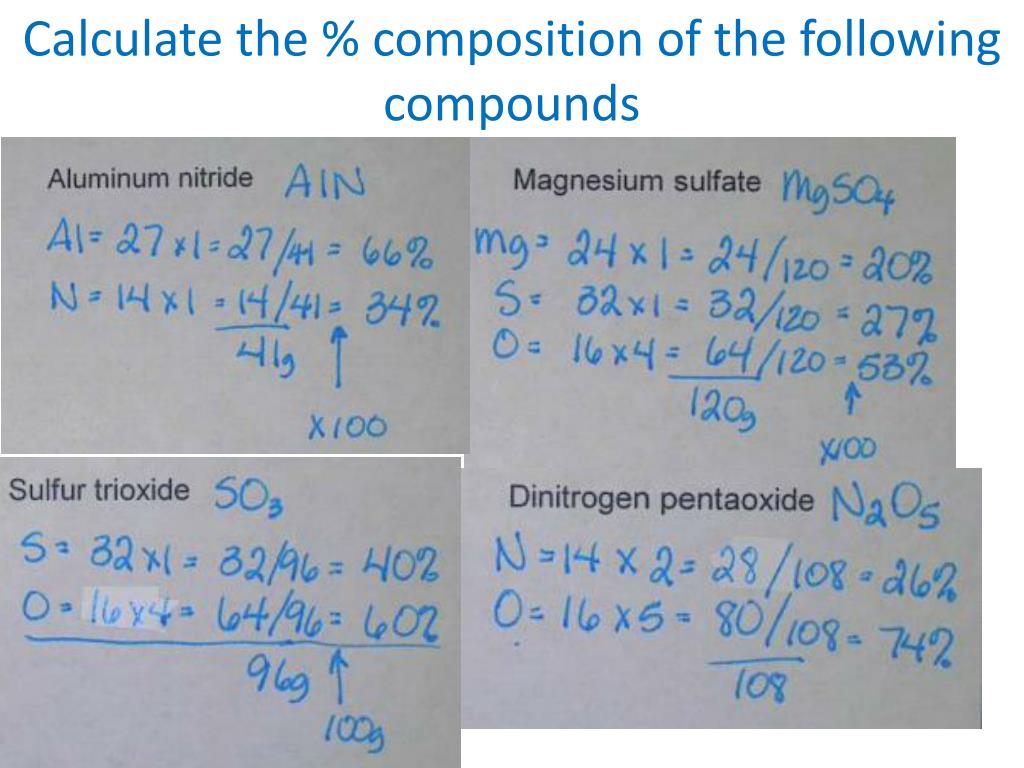 Calculate the % composition of the following
compounds
Aluminum nitride AlN
Al = 27 x 1 = 27/41 = 66%
N = 14 x 1 = 14/41 = 34%
41g
x100
Magnesium sulfate MgSO4
Mg = 24 x 1 = 24/120 = 20%
S = 32 x 1 = 32/120 = 27%
O = 16 x 4 = 64/120 = 53%
120g
x100
Sulfur trioxide SO3
S = 32 x 1 = 32/96 = 40%
O = 16 x 4 = 64/96 = 60%
96g
100g
Dinitrogen pentaoxide N2O5
N = 14 x 2 = 28/108 = 26%
O = 16 x 5 = 80/108 = 74%
108